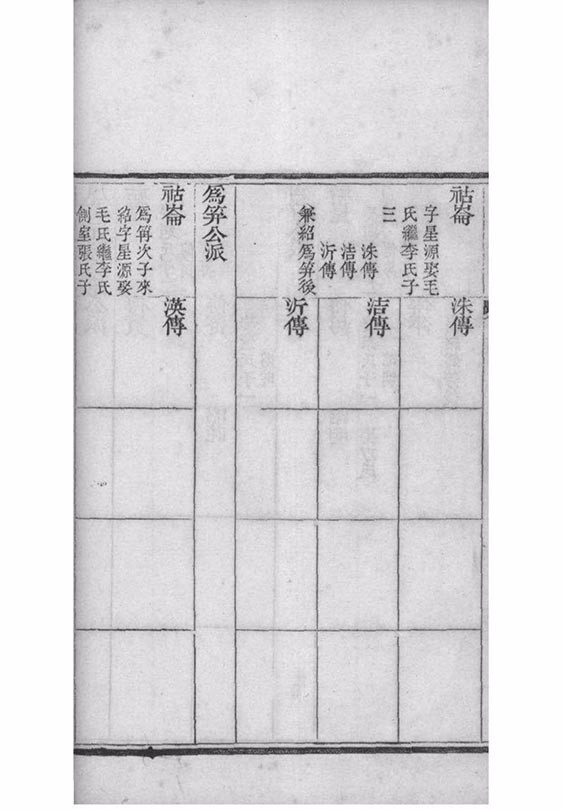 祜崙
字星源娶毛
氏繼李氏子
三
洙傳
洁傳
沂傳
兼紹爲笄後
洙傳
洁傳
沂傳
爲笄公派
祜崙
爲笄次子來
紹字星源娶
毛氏繼李氏
側室張氏子
渶傳